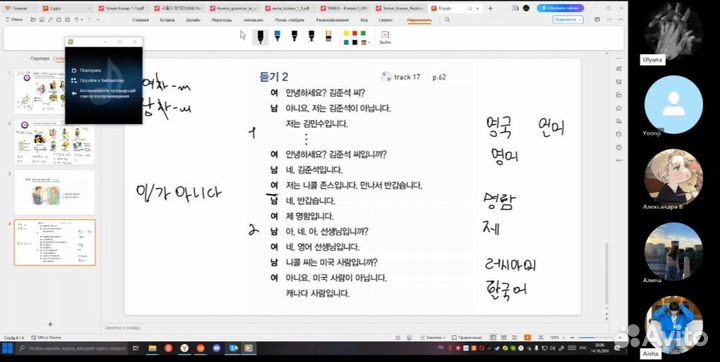 Главная
ZapiS
Korean Korean 1-1.pdf
Korean_Korean_1
Korean_grammar_in_u
Главная
Вставка
Дизайн
Переходы
Анимация
Показ слайдов
Рецензирование
Вид
Рисовать
Поделиться
Выйти
Структура
Повторить
Перейти к библиотеке
Воспроизвести предыдущий
список воспроизведения
여자-ж
남자-м
이/가 아니다
듣기 2
track 17 p.62
여 안녕하세요? 김준석 씨?
남 아니요, 저는 김준석이 아닙니다.
저는 김민수입니다.
1
⋮
여 안녕하세요? 김준석 씨입니까?
남 네, 김준석입니다.
여 저는 니콜 존스입니다. 만나서 반갑습니다.
남 네, 반갑습니다.
여 제 명함입니다.
2
남 아, 네. 아, 선생님입니까?
여 네, 영어 선생님입니다.
남 니콜 씨는 미국 사람입니까?
여 아니요, 미국 사람이 아닙니다.
캐나다 사람입니다.
영국 언어
영어
명함
제
러시아어
한국어
Заметки к слайду
Слайд 4 / 4
Office Theme
Чтобы начать поиск, введите здесь запрос
РУС
14.10.2024
Ulyana
Yoonji
Александра В
Алина
Aisha
Avito